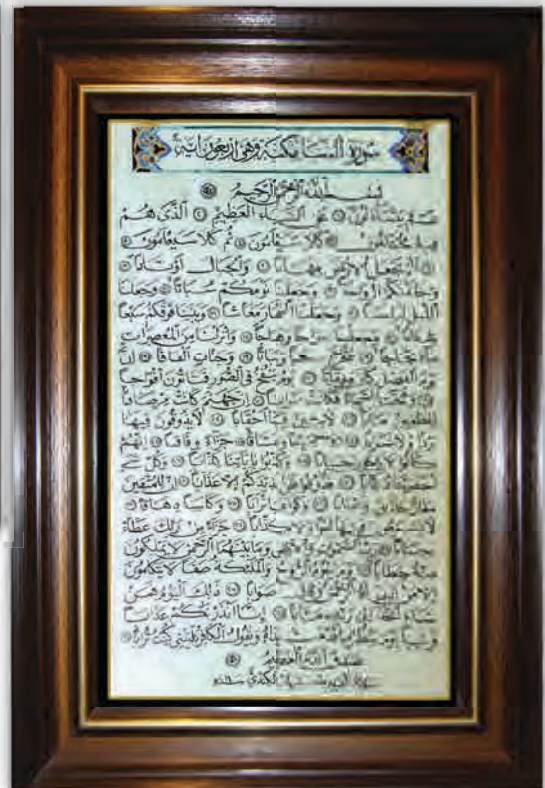 سورة النبأ مكية وهي أربعون آية
بسم الله الرحمن الرحيم
عم يتساءلون عن النبإ العظيم الذي هم
فيه مختلفون كلا سيعلمون ثم كلا سيعلمون
ألم نجعل الأرض مهادا والجبال أوتادا
وخلقنكم أزواجا وجعلنا نومكم سباتا وجعلنا
الليل لباسا وجعلنا النهار معاشا وبنينا فوقكم سبعا
شدادا وجعلنا سراجا وهاجا وأنزلنا من المعصرات
ماء ثجاجا لنخرج به حبا ونباتا وجنات ألفافا إن
يوم الفصل كان ميقاتا يوم ينفخ في الصور فتأتون أفواجا
وفتحت السماء فكانت إن جهنم كانت مرصادا
للطغين مآبا لبثين فيها أحقابا لا يذوقون فيها
بردا ولا شرابا إلا حميما وغساقا جزاء وفاقا إنهم
كانوا لا يرجون حسابا وكذبوا بآياتنا كذابا وكل شيء
أحصيناه كتابا فذوقوا فلن نزيدكم إلا عذابا إن للمتقين
مفازا حدائق وأعنابا وكواعب أترابا وكأسا دهاقا
لا يسمعون فيها لغوا ولا كذابا جزاء من ربك عطاء
حسابا رب السموات والأرض وما بينهما الرحمن لا يملكون
منه خطابا يوم يقوم الروح والملئكة صفا لا يتكلمون
إلا من أذن له الرحمن وقال صوابا ذلك اليوم الحق فمن
شاء اتخذ إلى ربه مآبا إنا أنذرنكم عذابا
قريبا يوم ينظر المرء ما قدمت يداه ويقول الكافر يليتني كنت ترابا
صدق الله العظيم